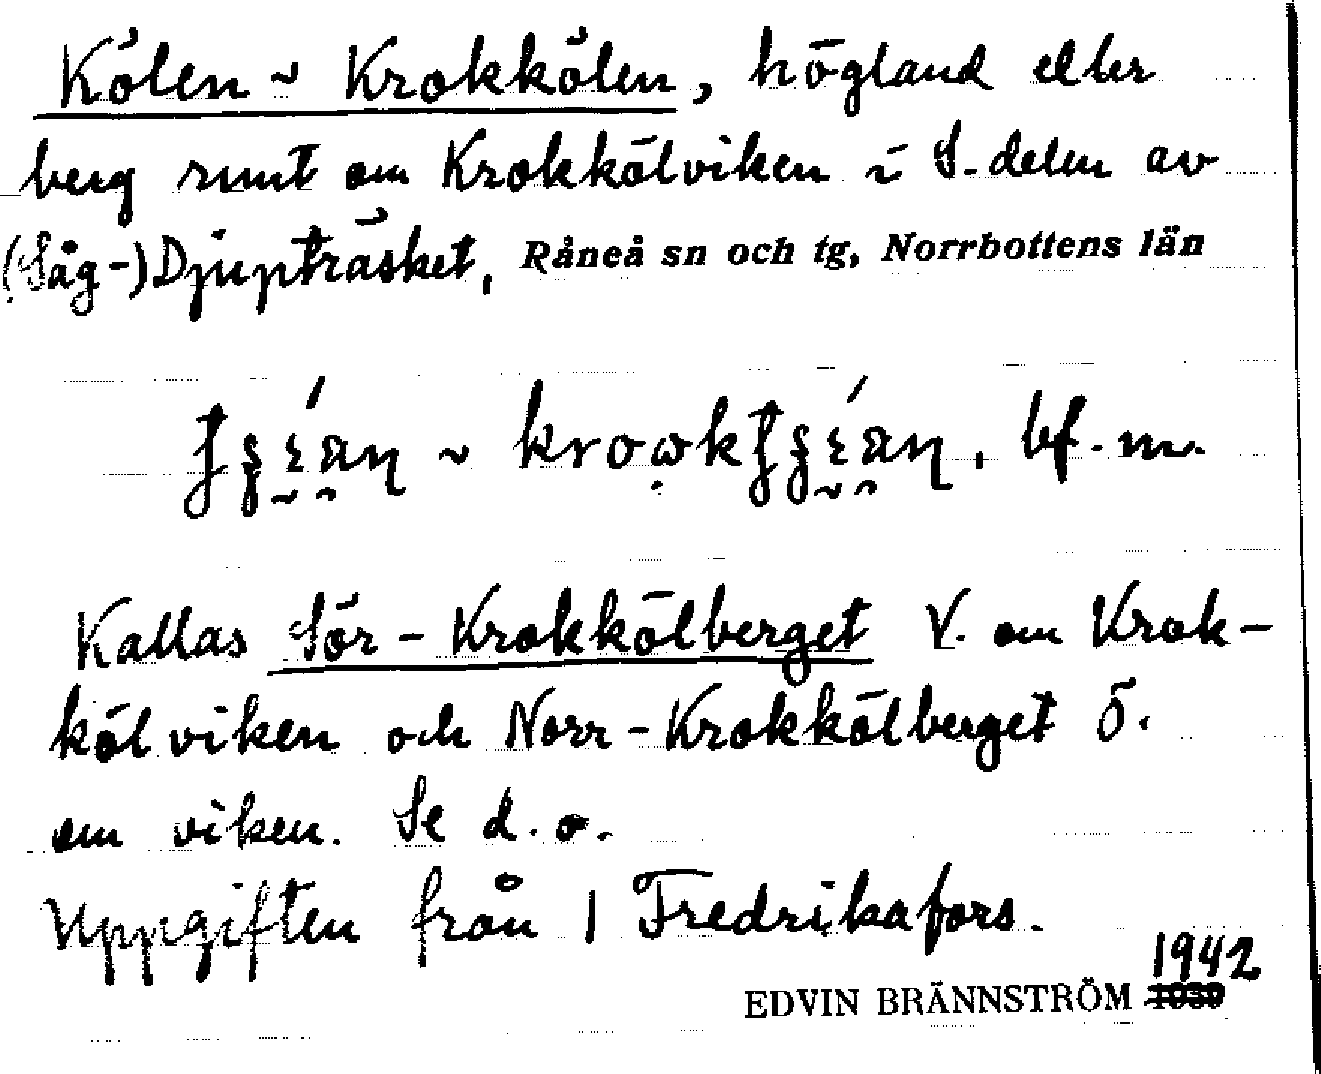 Kölen ~ Krokkölen, högland eller
berg runt om Krokkölviken i S. delen av
(Såg-)Djupträsket, Råneå sn och tg, Norrbottens län
bf. m.
Kallas Sör-Krokkölberget V. om Krok-
kölviken och Norr-Krokkölberget Ö.
om viken. Se d. o.
Uppgiften från 1 Fredrikafors.
1942
EDVIN BRÄNNSTRÖM 1939